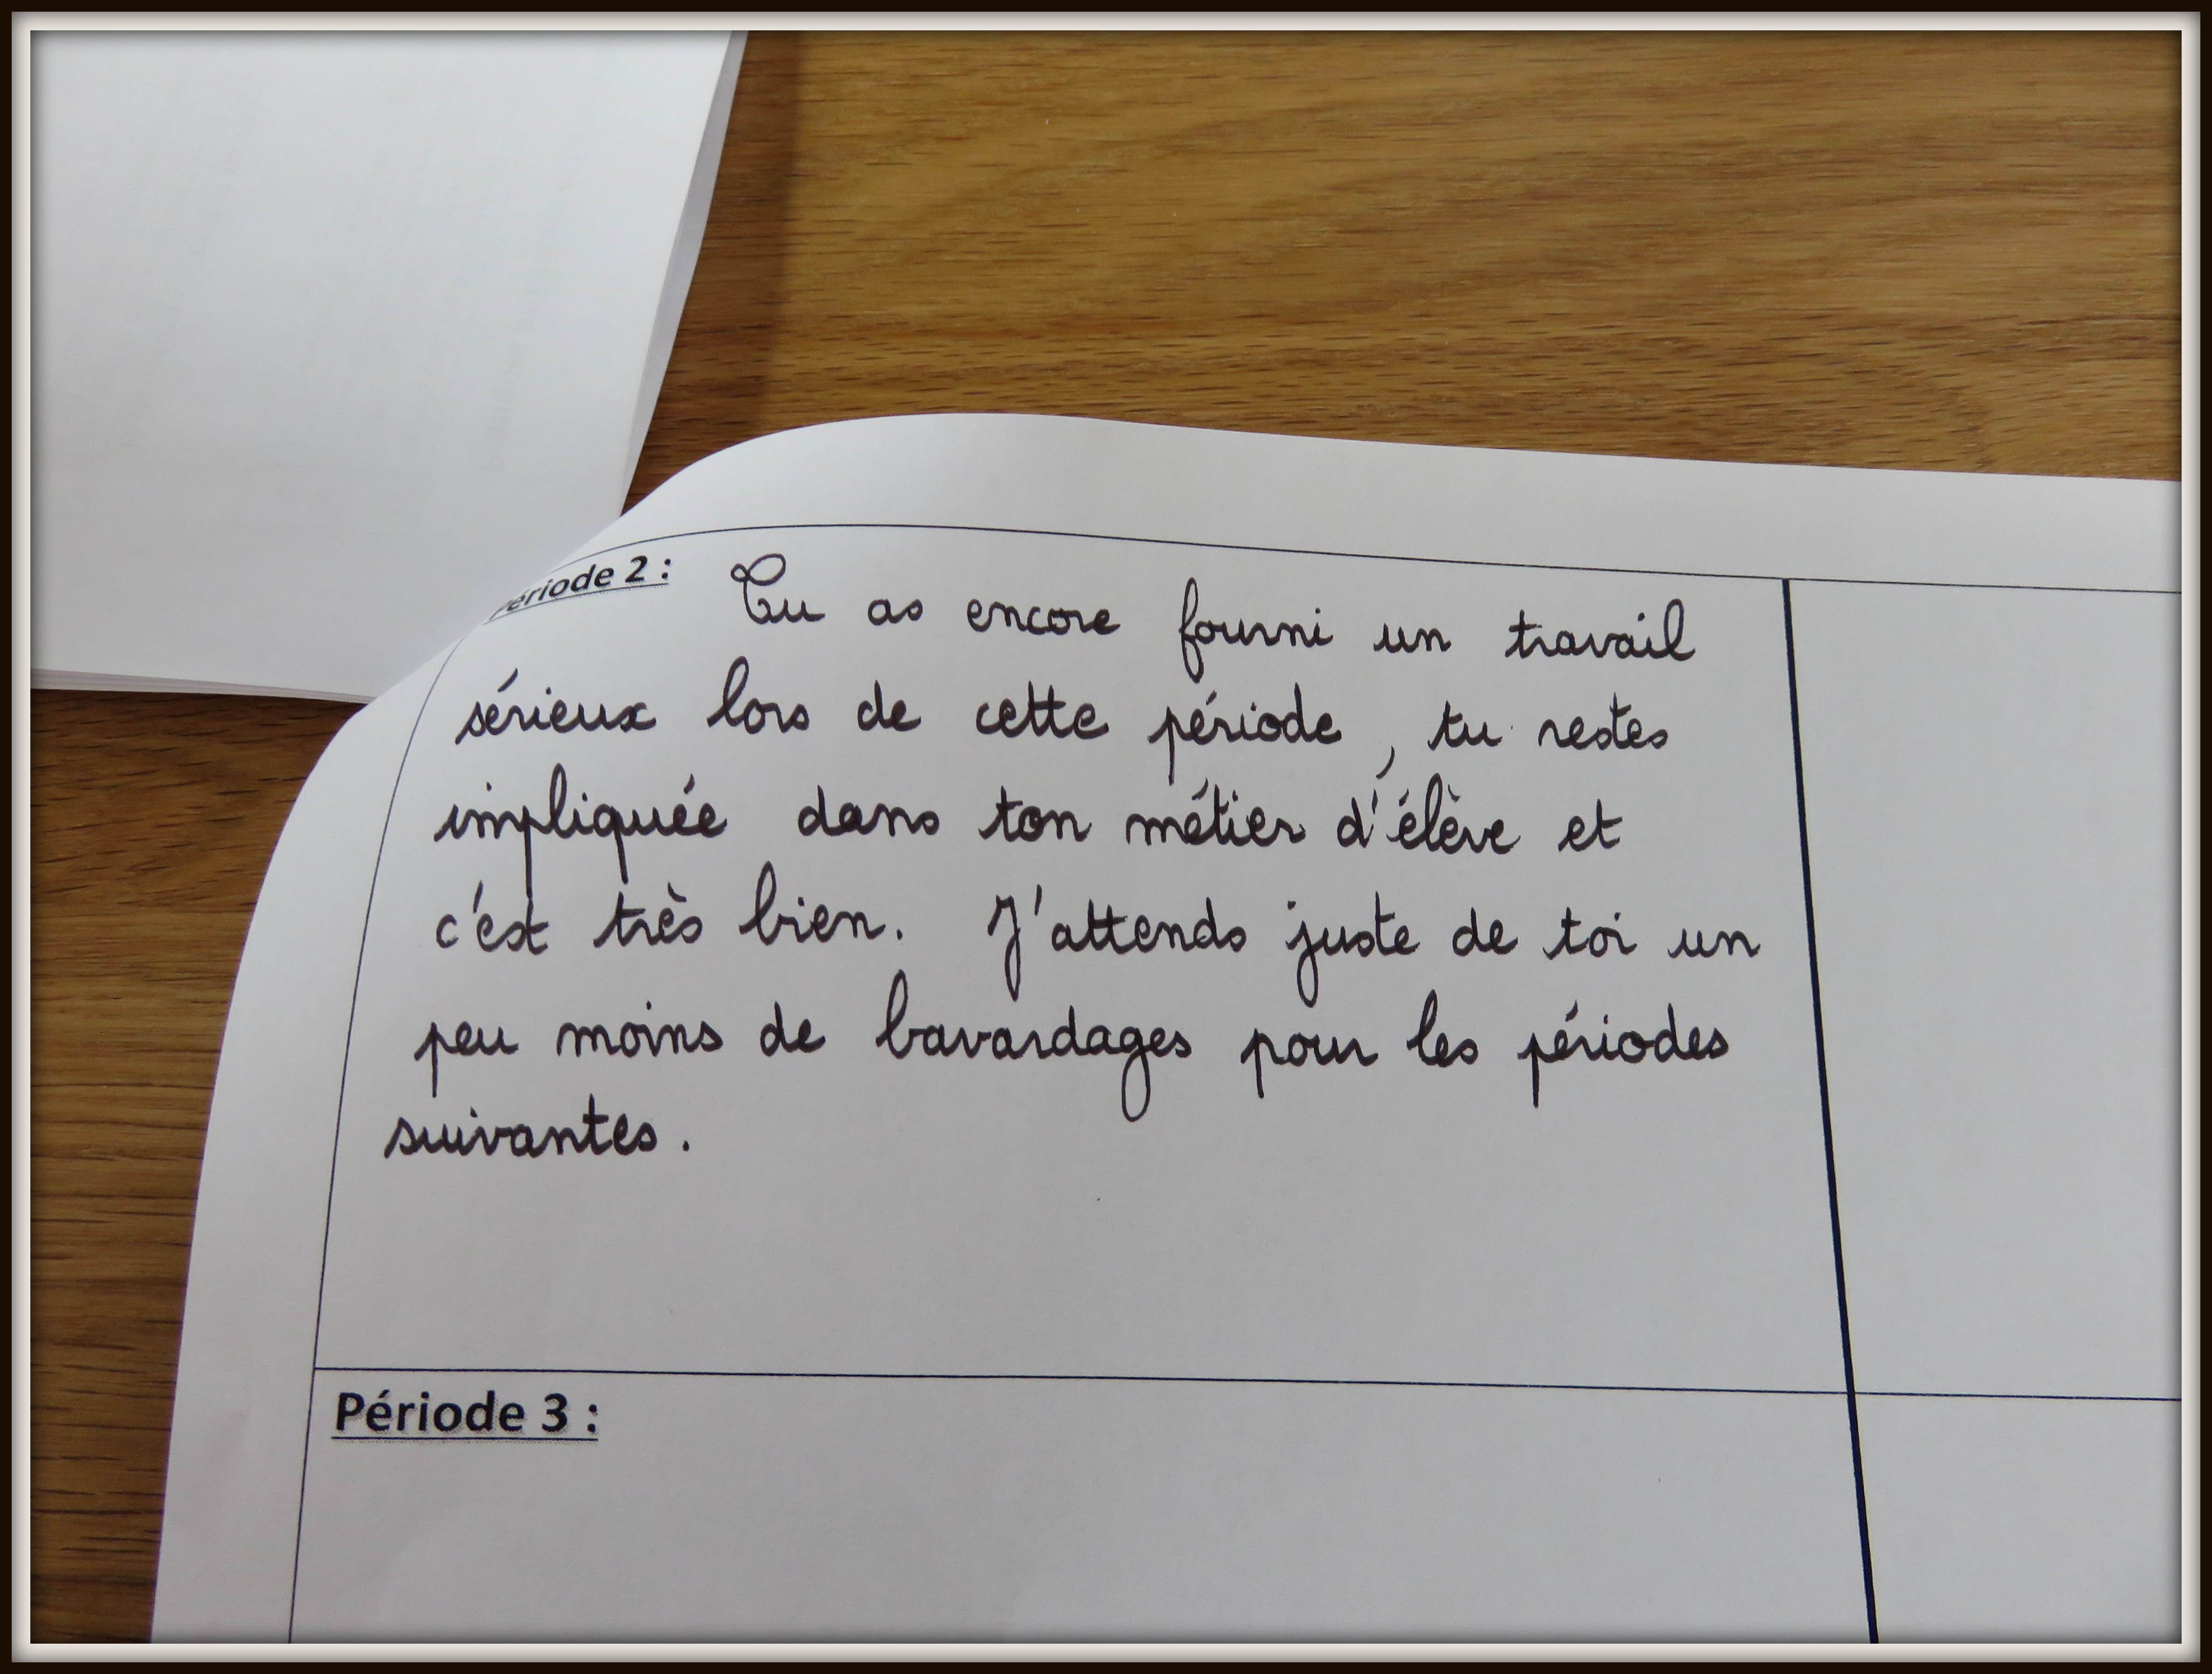 Période 2 : Tu as encore fourni un travail
sérieux lors de cette période, tu restes
impliquée dans ton métier d'élève et
c'est très bien. J'attends juste de toi un
peu moins de bavardages pour les périodes
suivantes.
Période 3 :